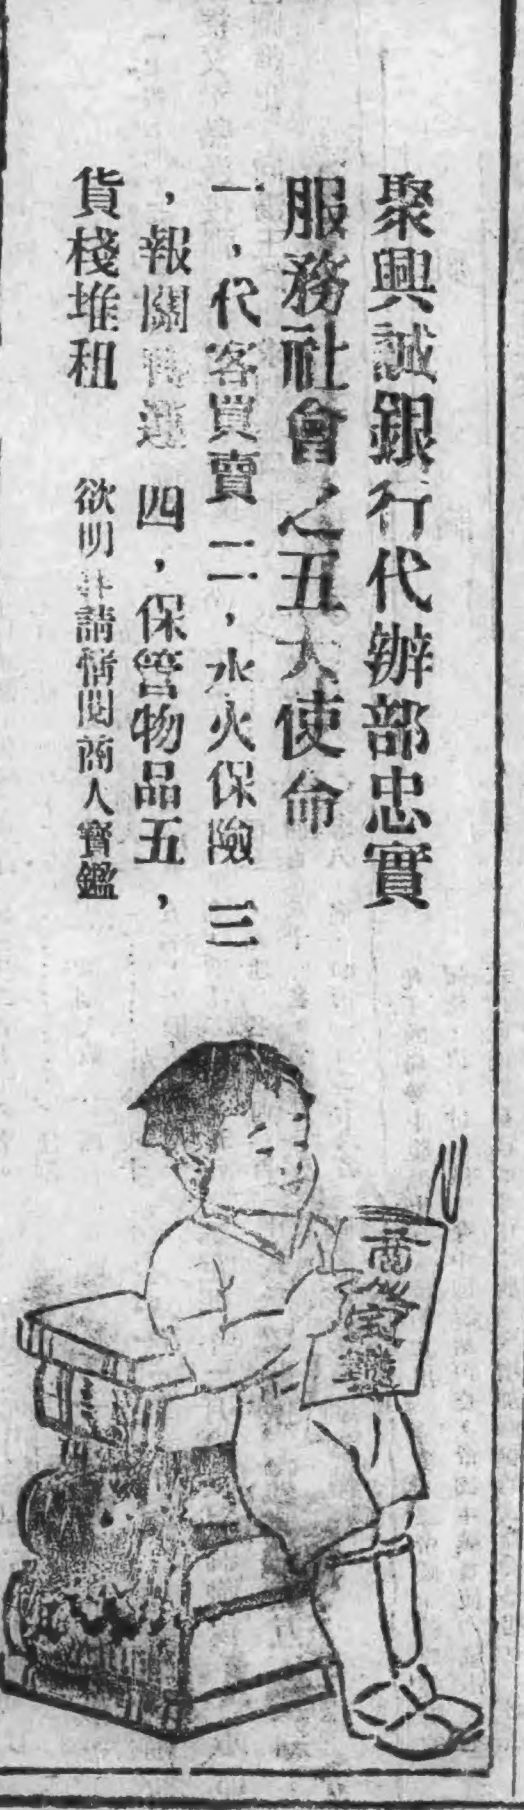 聚興誠銀行代辦部忠實
服務社會之五大使命
一，代客買賣 二，水火保險 三
，報關轉運 四，保管物品五，
貨棧堆租 欲明詳請惜閱商人寶鑑
商人寶鑑